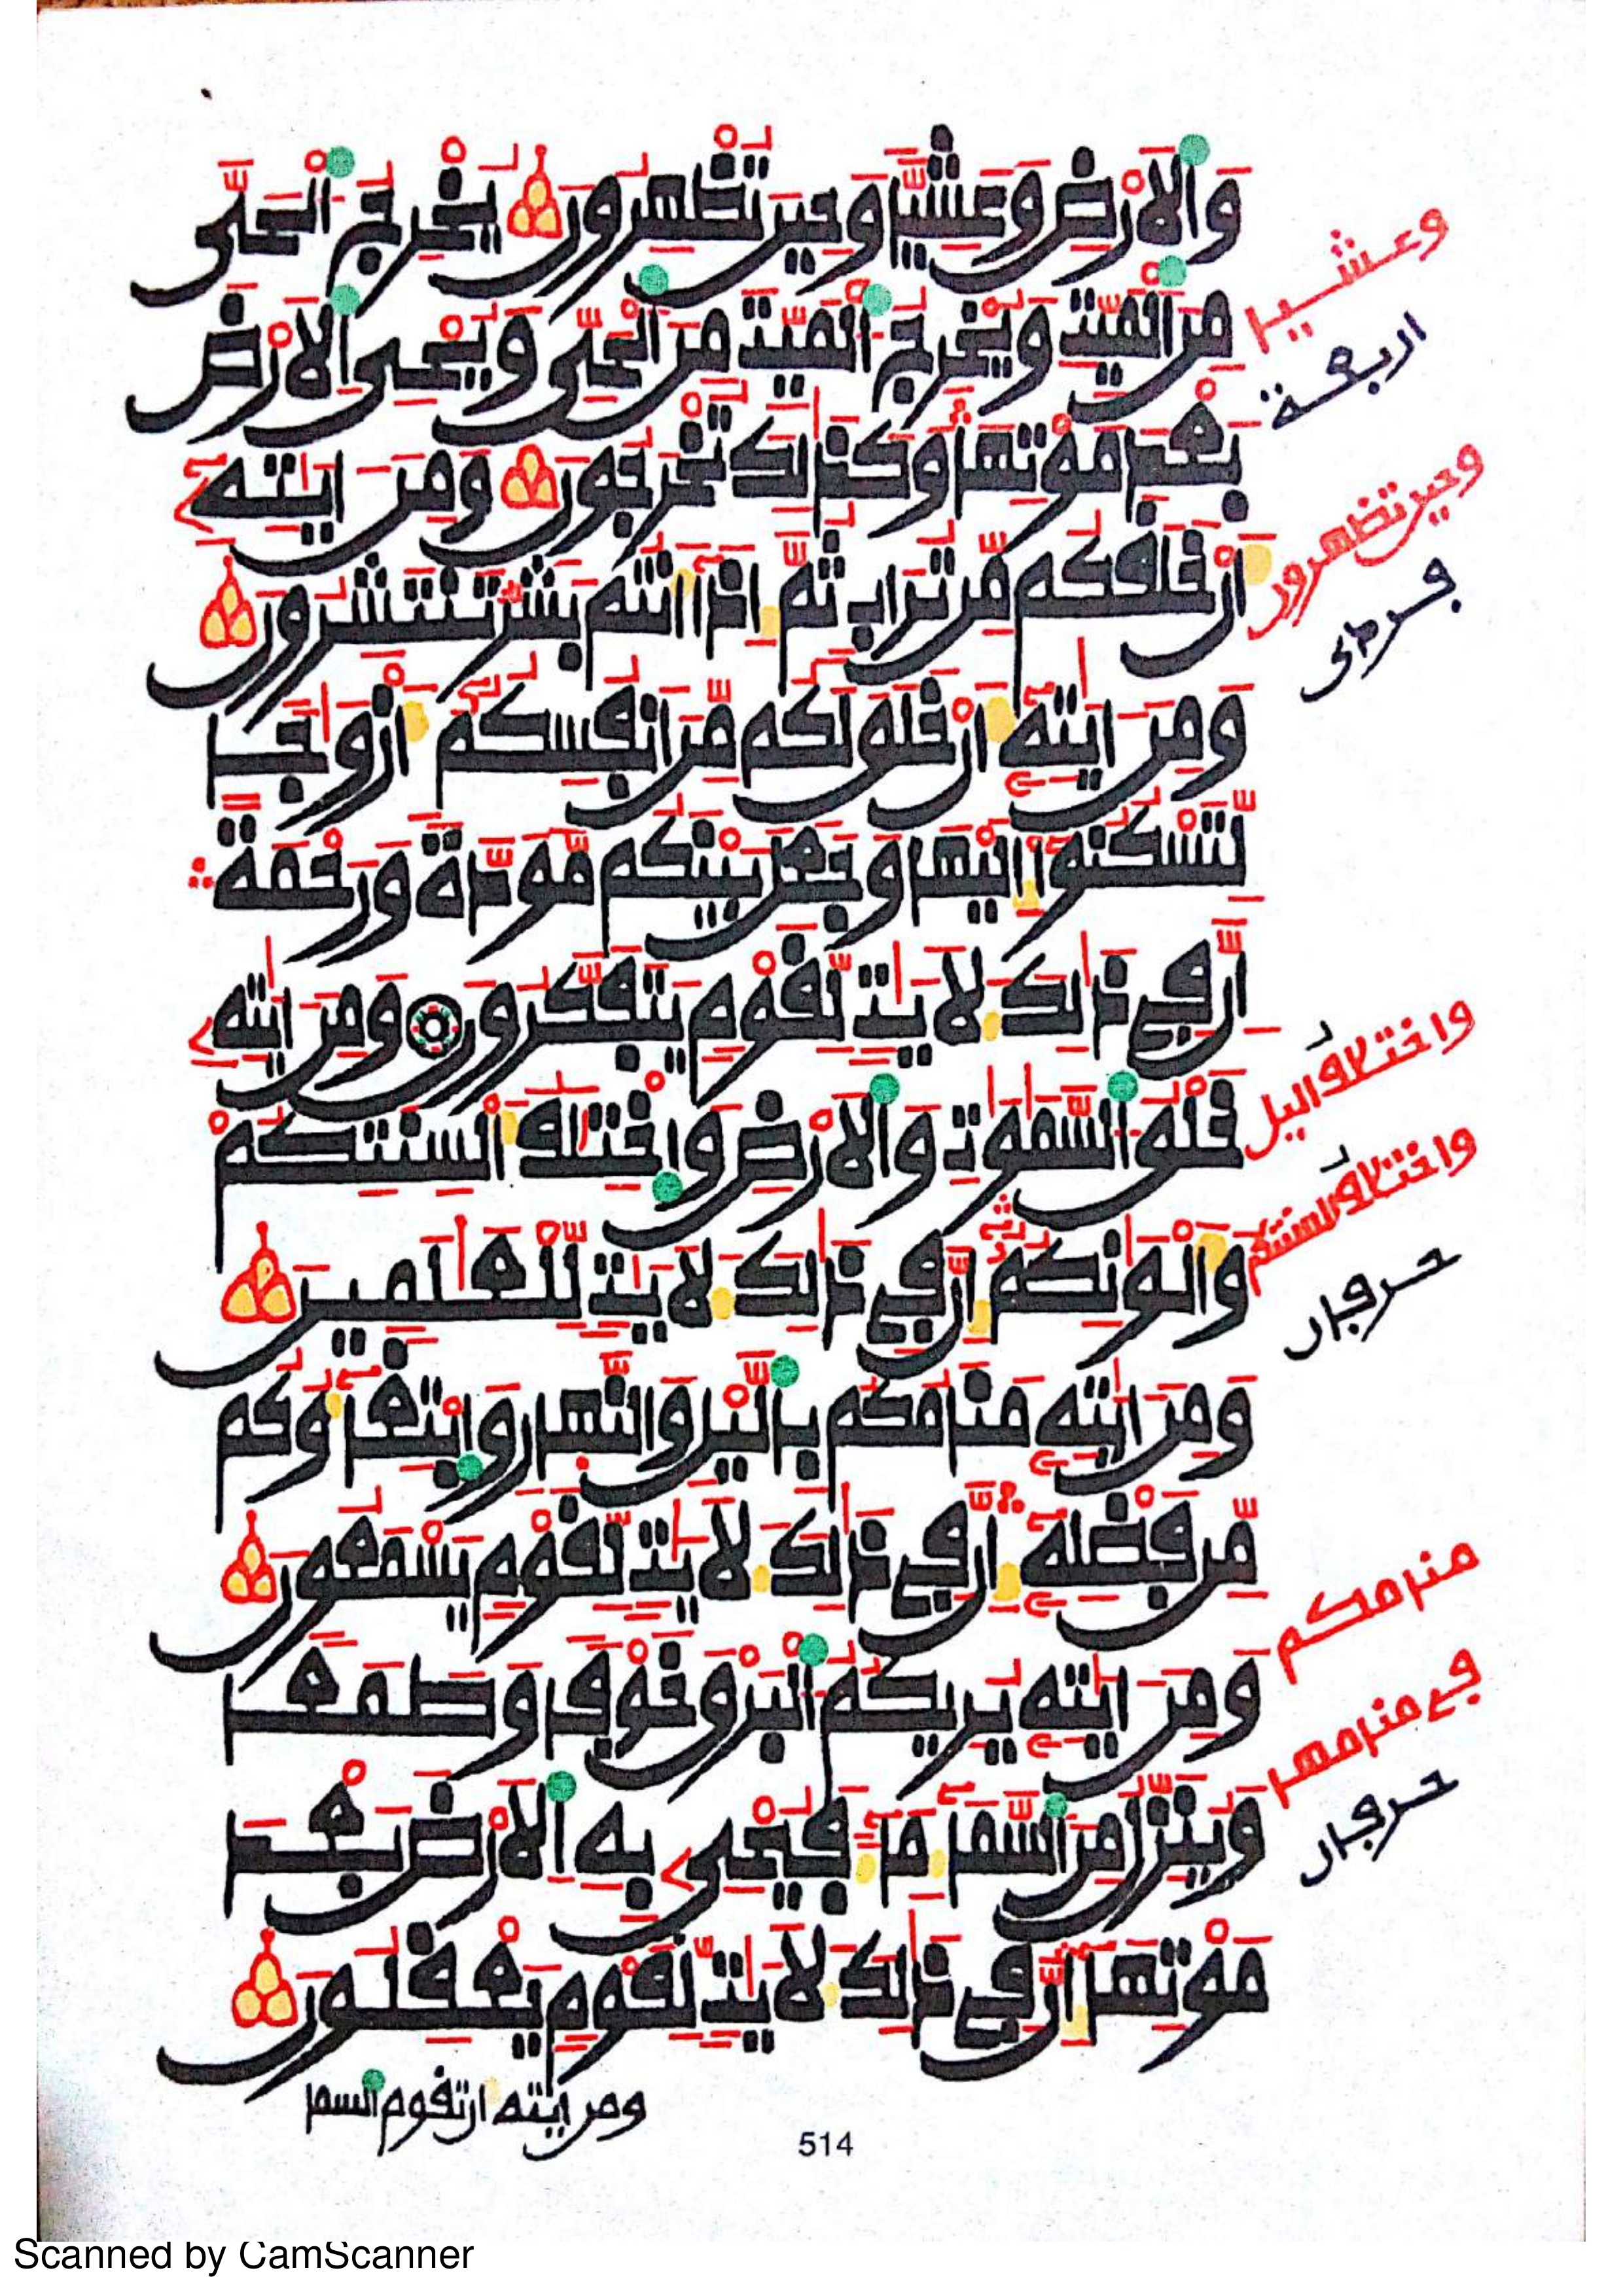 وَالَارْضِ وَعَشِيًّا وَحِينَ تُظْهِرُونَ يُخْرِجُ الْحَيَّ
مِنَ الْمَيِّتِ وَيُخْرِجُ الْمَيِّتَ مِنَ الْحَيِّ وَيُحْيِ الَارْضَ
بَعْدَ مَوْتِهَا وَكَذَٰلِكَ تُخْرَجُونَ وَمِنَ ايَٰتِهِ
أَنْ خَلَقَكُم مِّن تُرَابٍ ثُمَّ إِذَا أَنتُم بَشَرٌ تَنتَشِرُونَ
وَمِنَ ايَٰتِهِ أَنْ خَلَقَ لَكُم مِّنَ انفُسِكُمُ أَزْوَٰجًا
لِّتَسْكُنُوا إِلَيْهَا وَجَعَلَ بَيْنَكُم مَّوَدَّةً وَرَحْمَةً
إِنَّ فِي ذَٰلِكَ لَأيَٰتٍ لِّقَوْمٍ يَتَفَكَّرُونَ وَمِنَ ايَٰتِهِ
خَلْقُ السَّمَٰوَٰتِ وَالَارْضِ وَاخْتِلَٰفُ أَلْسِنَتِكُمْ
وَأَلْوَٰنِكُمُ إِنَّ فِي ذَٰلِكَ لَأيَٰتٍ لِّلْعَٰلَمِينَ
وَمِنَ ايَٰتِهِ مَنَامُكُم بِالَّيْلِ وَالنَّهَارِ وَابْتِغَاؤُكُم
مِّن فَضْلِهِ إِنَّ فِي ذَٰلِكَ لَأيَٰتٍ لِّقَوْمٍ يَسْمَعُونَ
وَمِنَ ايَٰتِهِ يُرِيكُمُ الْبَرْقَ خَوْفًا وَطَمَعًا
وَيُنَزِّلُ مِنَ السَّمَاءِ مَاءً فَيُحْيِ بِهِ الَارْضَ بَعْدَ
مَوْتِهَا إِنَّ فِي ذَٰلِكَ لَأيَٰتٍ لِّقَوْمٍ يَعْقِلُونَ
ومن ايته ان تقوم السما
وعشيا
اربعة
وحين تظهرون
واختلاف اليل
واختلاف السنتكم
حرفان
منامكم
في منامهم
حرفان
514
Scanned by CamScanner